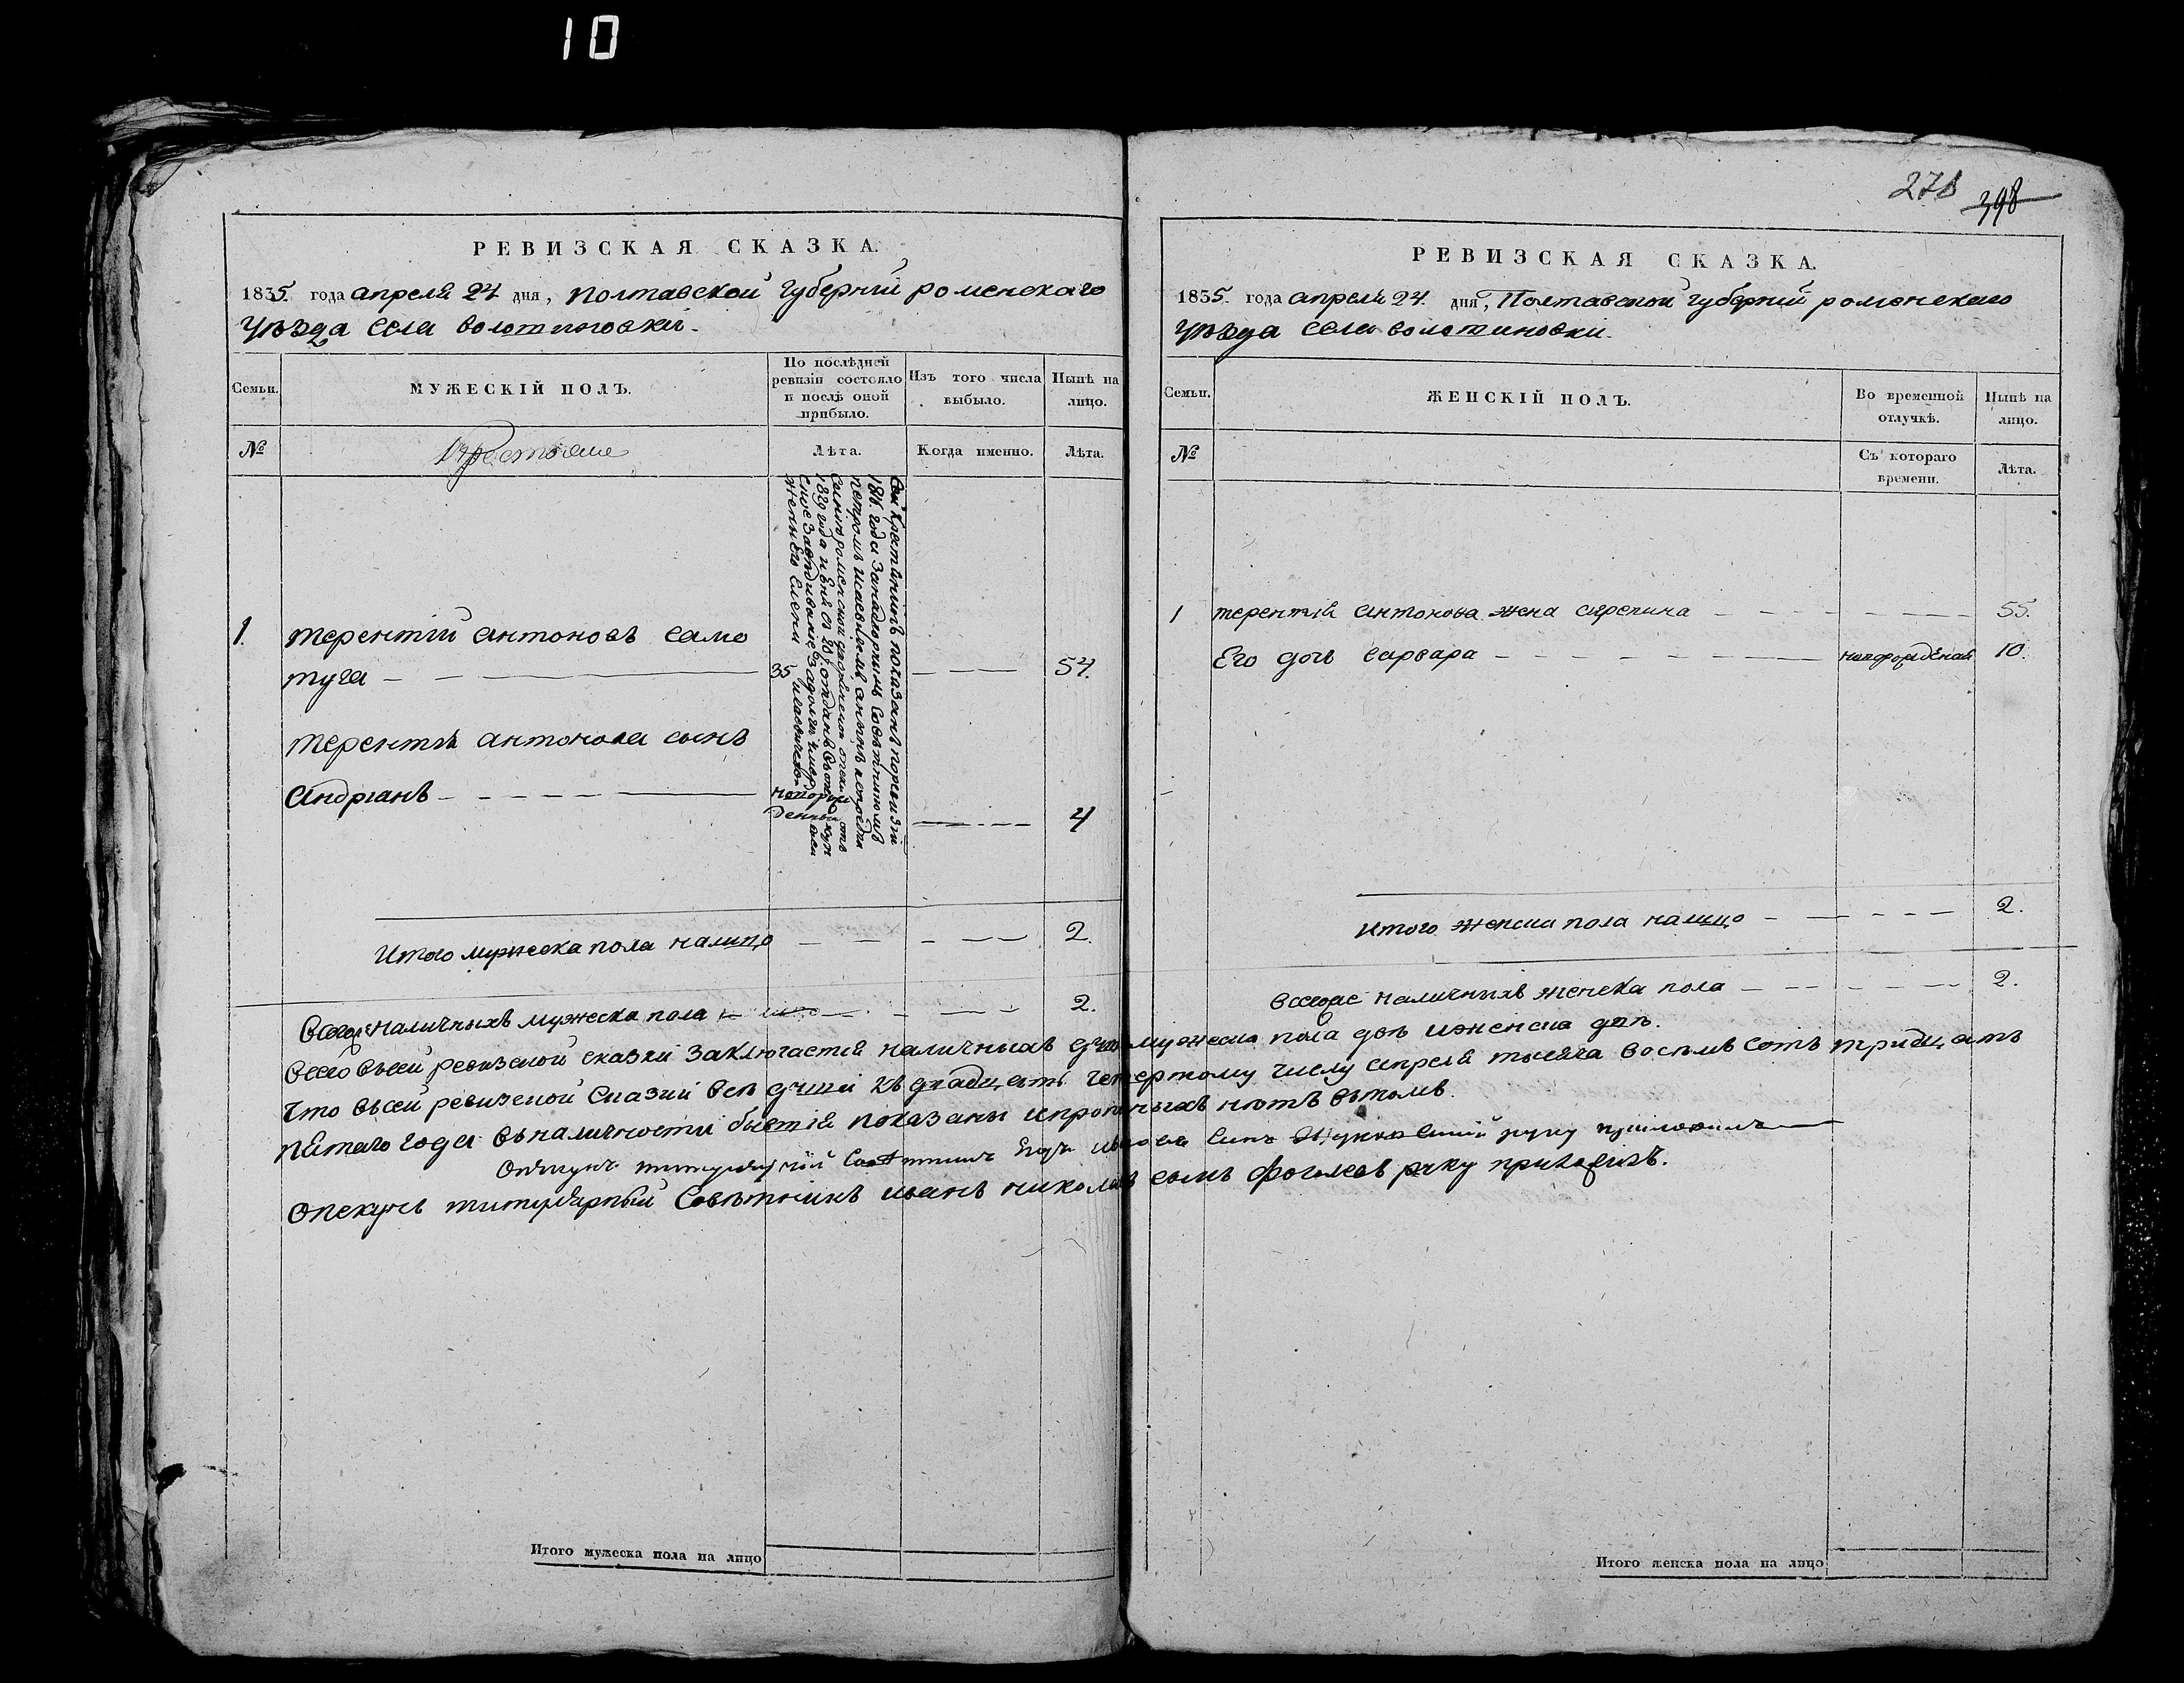 10
РЕВИЗСКАЯ СКАЗКА.
1835. года апреля 24 дня, полтавской губерній роменскаго
уѣзда села волотиновки.
Семьи.
МУЖЕСКІЙ ПОЛЪ.
По послѣдней ревизіи состояло и послѣ оной прибыло.
Изъ того числа выбыло.
Нынѣ на лицо.
№
Крестьяне
Лѣта.
Когда именно.
Лѣта.
Сей Крестьянинъ показанъ поревизіи
1816. года Занадворнимъ Совѣтникомъ
петромъ
1829 года
жены Его Елены
1. терентій антоновъ само
туга — 35 — 54.
терентія антонова сынъ
андріанъ — новорож
денный — 4
Итого мужеска пола налицо — 2.
Всегоже наличныхъ мужеска пола — 2.
278 398
РЕВИЗСКАЯ СКАЗКА.
1835. года апреля 24. дня, Полтавской губерній роменскаго
уѣзда села волотиновки.
Семьи.
ЖЕНСКІЙ ПОЛЪ.
Во временной отлучкѣ.
Нынѣ на лицо.
№
Съ котораго времени.
Лѣта.
1 терентія антонова жена — 55.
Его дочь варвара — новорожденая 10.
Итого женска пола налицо — 2.
всегоже наличныхъ женска пола — 2.
Всего въсей ревизской сказки заключается наличныхъ душъ мужеска пола двѣ иженска двѣ.
Что въсей ревизской сказки всѣ души къ двадцать четвертому числу апреля тысяча восемъ сотъ тридцать
пятаго года въналичности бытія показаны ипрописныхъ нѣтъ вътомъ.
Опекунъ титулярный Совѣтникъ сынъ руку приложилъ
опекунъ титулярный Совѣтникъ иванъ николаевъ сынъ руку приложилъ.
Итого мужеска пола на лицо
Итого женска пола на лицо